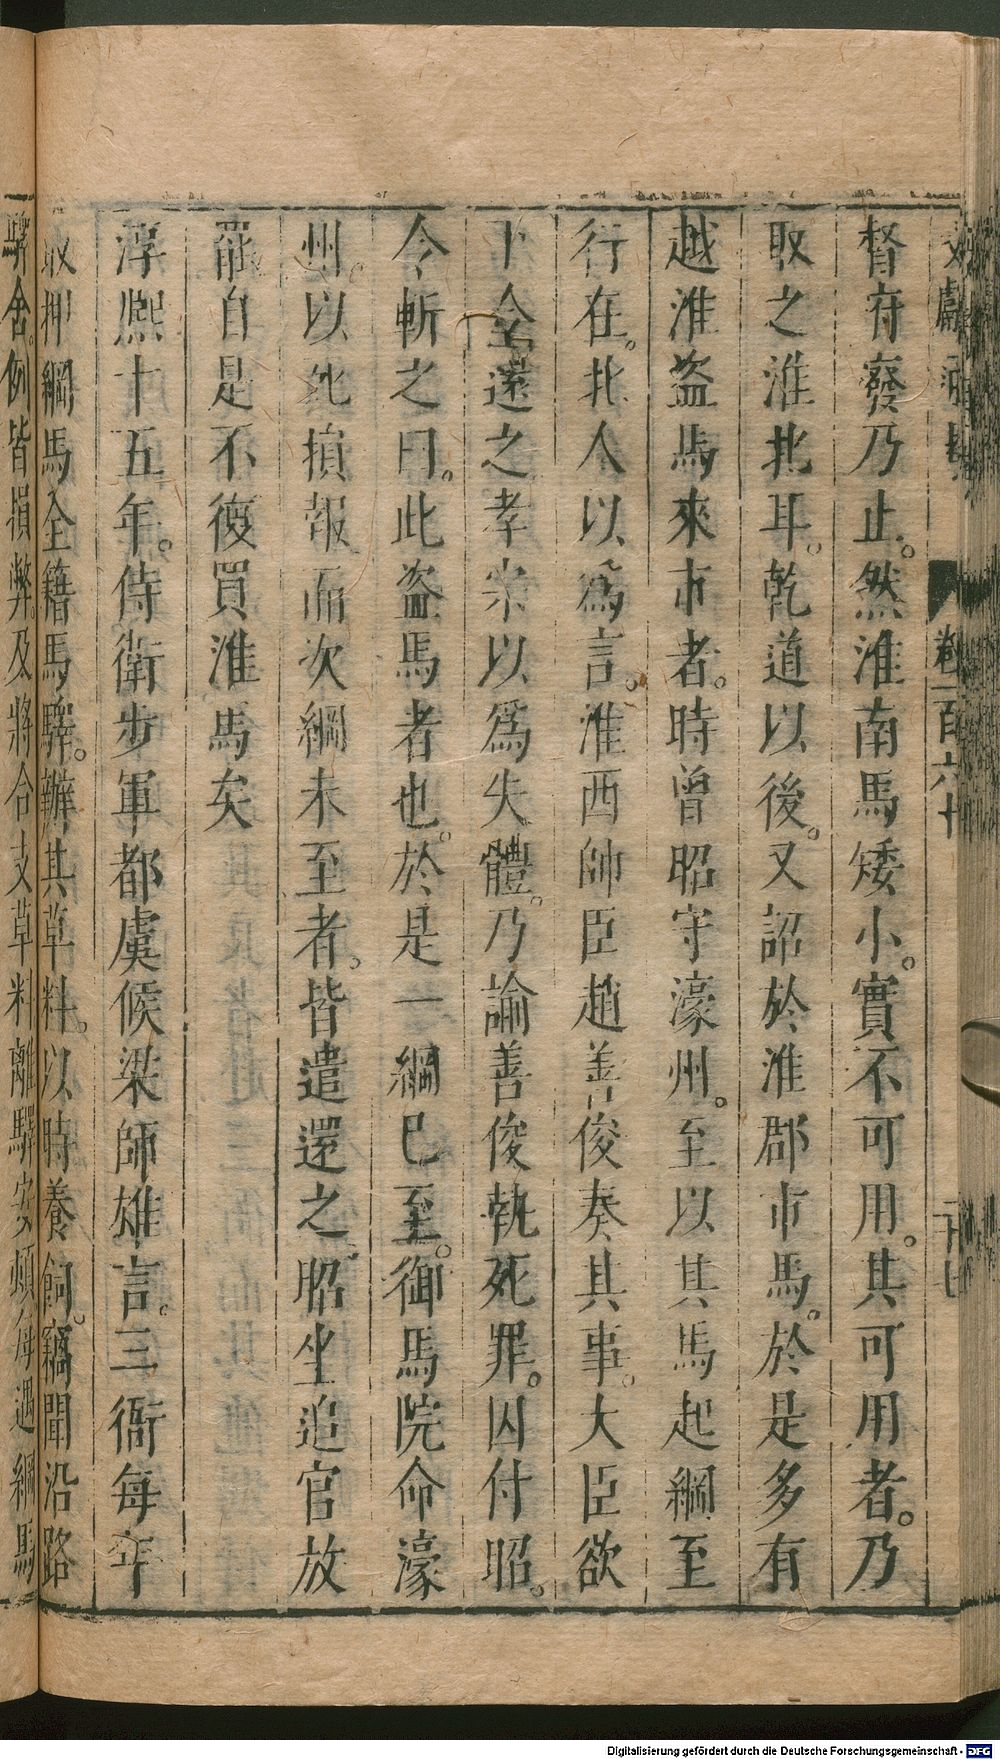 文獻通考 卷一百六十
督府發乃止。然淮南馬矮小。實不可用。其可用者。乃
取之淮北耳。乾道以後。又詔於淮郡市馬。於是多有
越淮盜馬來市者。時曾昭守濠州。至以其馬起綱至
行在。北人以為言。淮西帥臣趙善俊奏其事。大臣欲
下令還之孝宗以為失體。乃諭善俊執死罪。囚付昭。
令斬之曰。此盜馬者也。於是一綱巳至。御馬院命濠
州。以死損報而次綱未至者。皆遣還之昭坐追官放
罷自是不復買淮馬矣
淳熙十五年。侍衛步軍都虞候梁師雄言。三衙每年
取押綱馬全籍馬驛。辦其草料。以時養飼。竊聞沿路
驛舍。例皆損弊。及將合支草料離驛安頓每遇綱馬
Digitalisierung gefördert durch die Deutsche Forschungsgemeinschaft - DFG